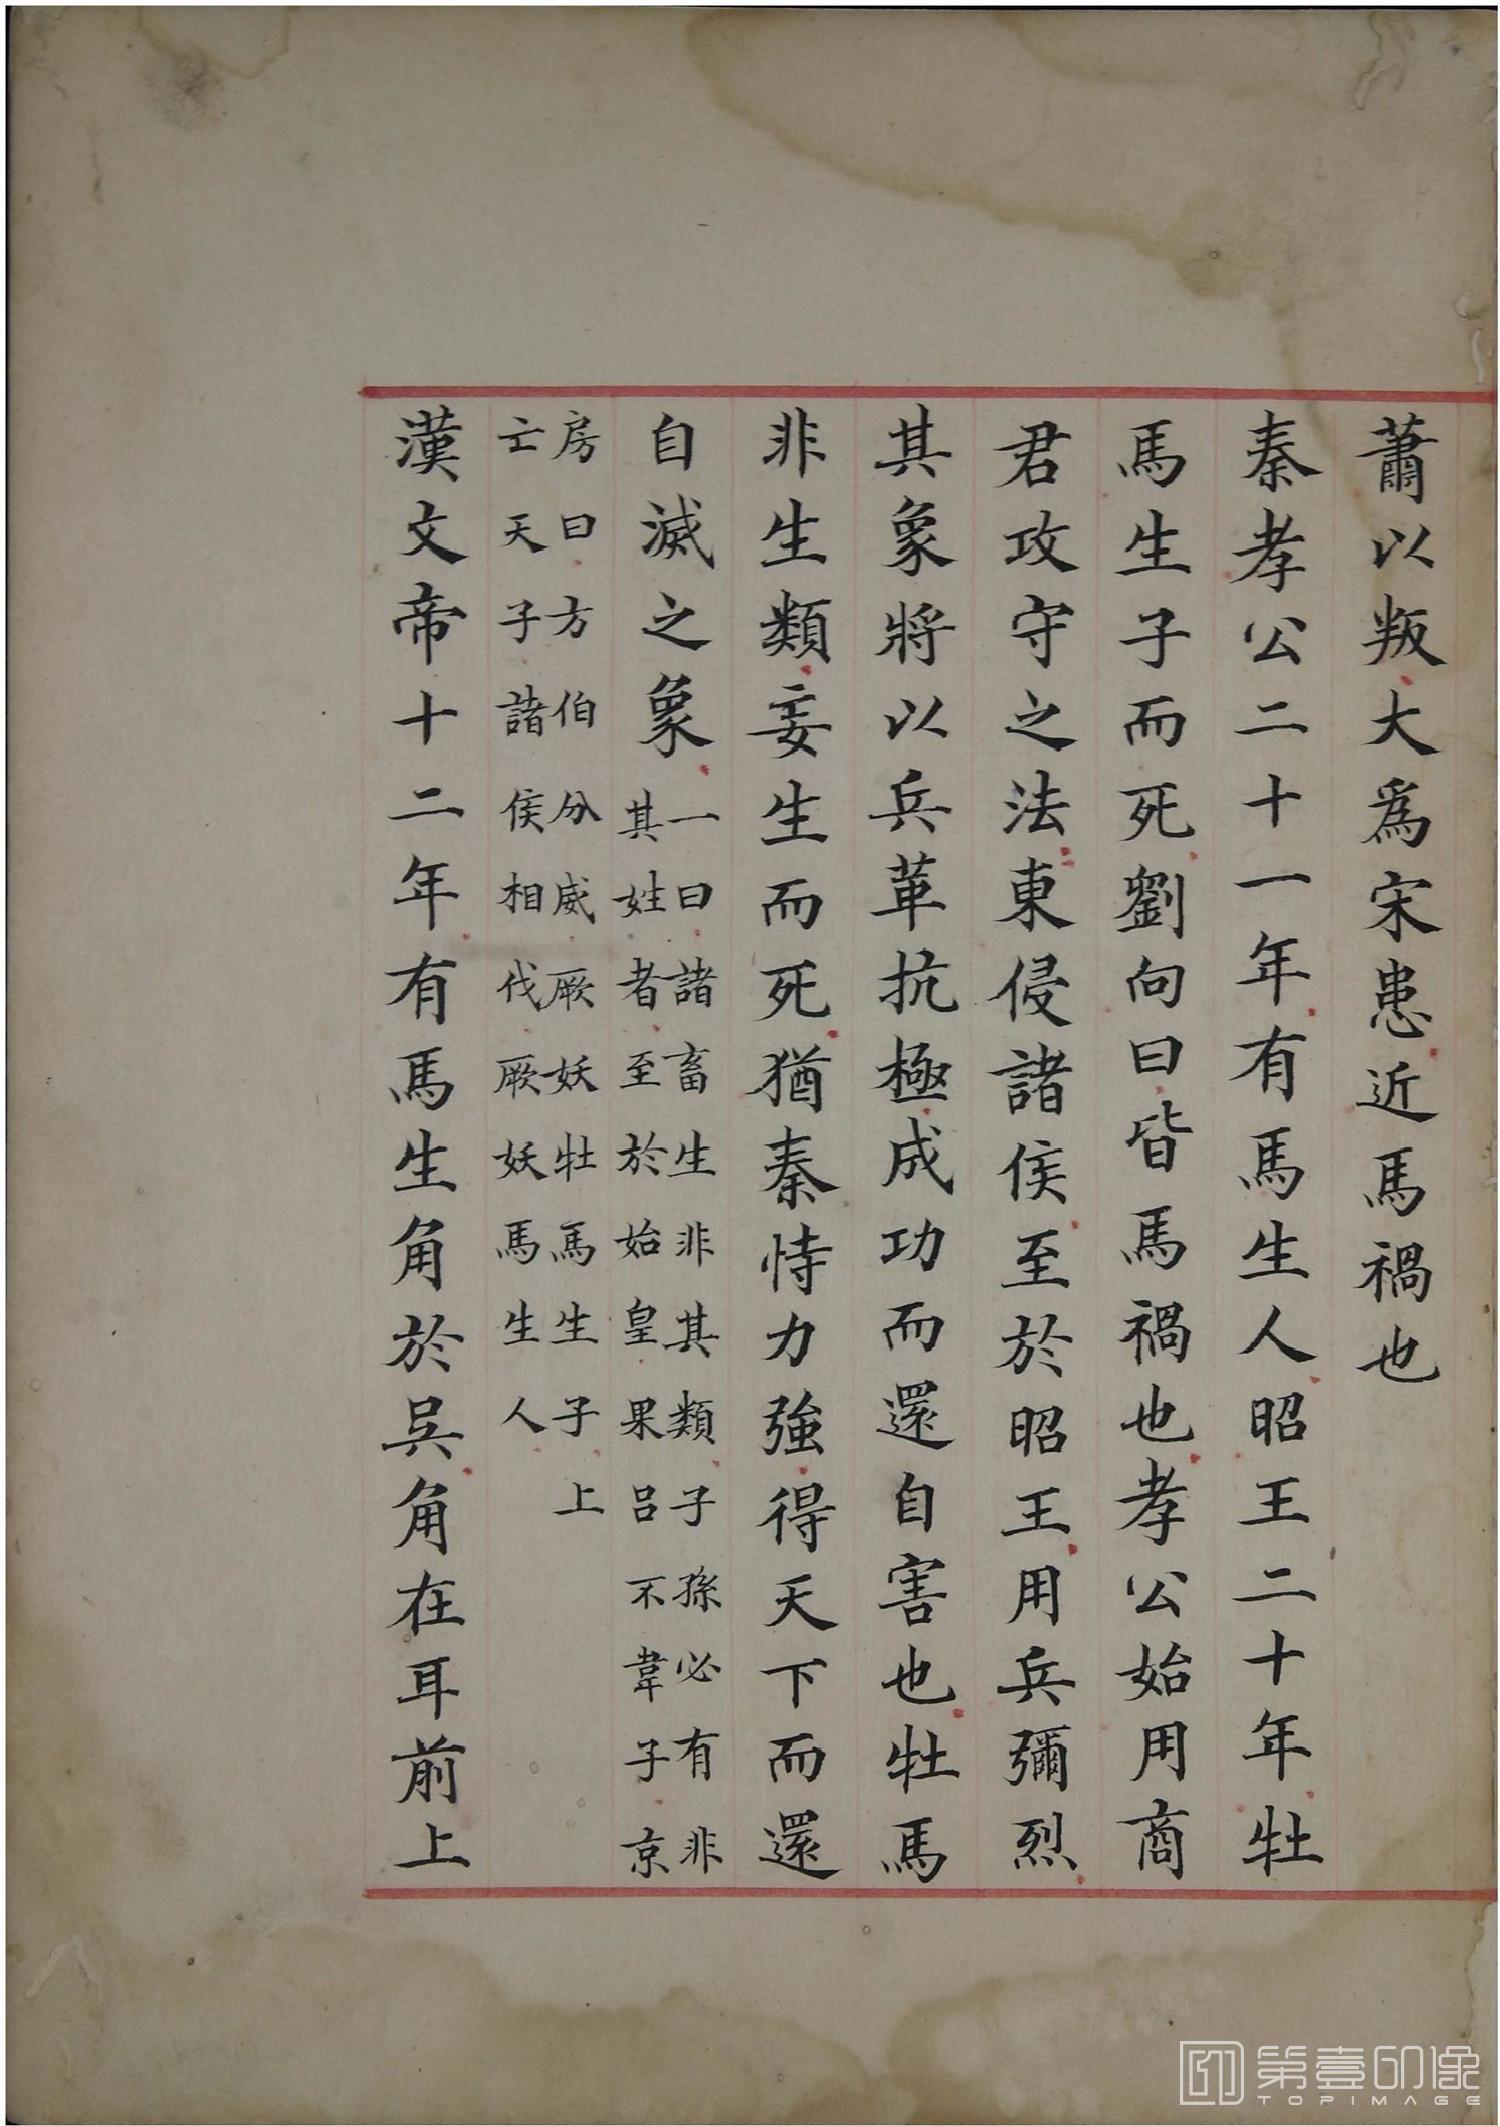 蕭以叛大爲宋患近馬禍也
秦孝公二十一年有馬生人昭王二十年牡
馬生子而死劉向曰皆馬禍也孝公始用商
君攻守之法東侵諸侯至於昭王用兵彌烈
其象將以兵革抗極成功而還自害也牡馬
非生類妄生而死猶秦恃力強得天下而還
自滅之象一曰諸畜生非其類子孫必有非
其姓者至於始皇果呂不韋子京
房曰方伯分威厥妖牡馬生子上
亡天子諸侯相伐厥妖馬生人
漢文帝十二年有馬生角於吳角在耳前上
第壹印像
TOPIMAGE